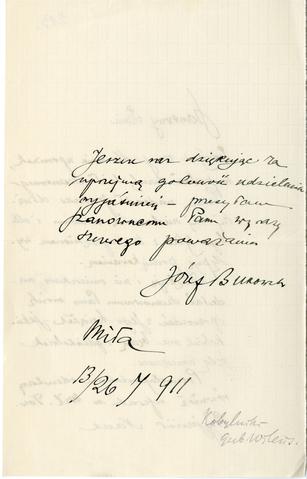 Jeszcze raz dziękując za
uprzejmą gotowość udzielenia
wyjaśnień – przesyłam
Szanownemu Panu wyrazy
szczerego poważania
Józef Bukowski
Miła
13/26 7 911